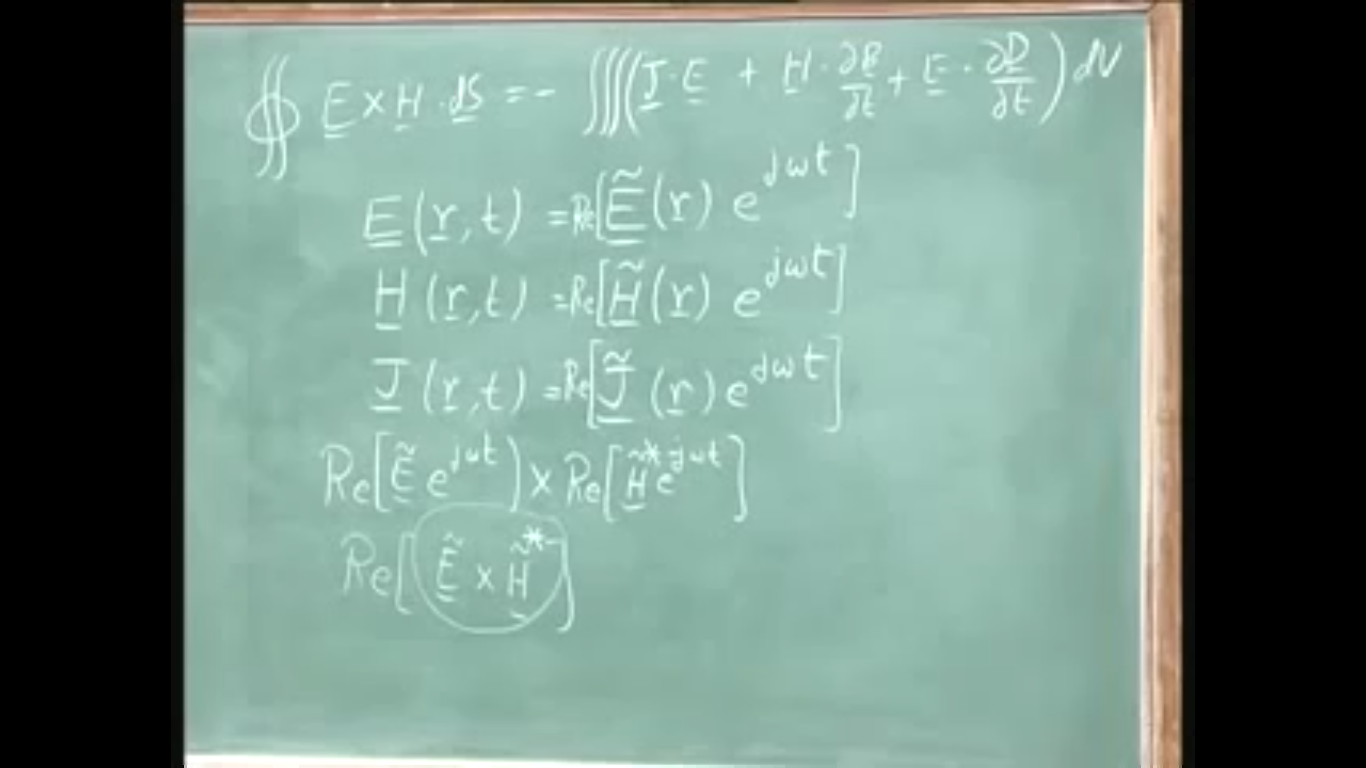 ∯ E × H · dS = - ∭(J · E + H · ∂B/∂t + E · ∂D/∂t) dV
E(r, t) = Re[Ẽ(r) e^{jωt}]
H(r, t) = Re[H̃(r) e^{jωt}]
J(r, t) = Re[J̃(r) e^{jωt}]
Re[Ẽ e^{jωt}) × Re[H̃* e^{-jωt}]
Re[Ẽ × H̃*]